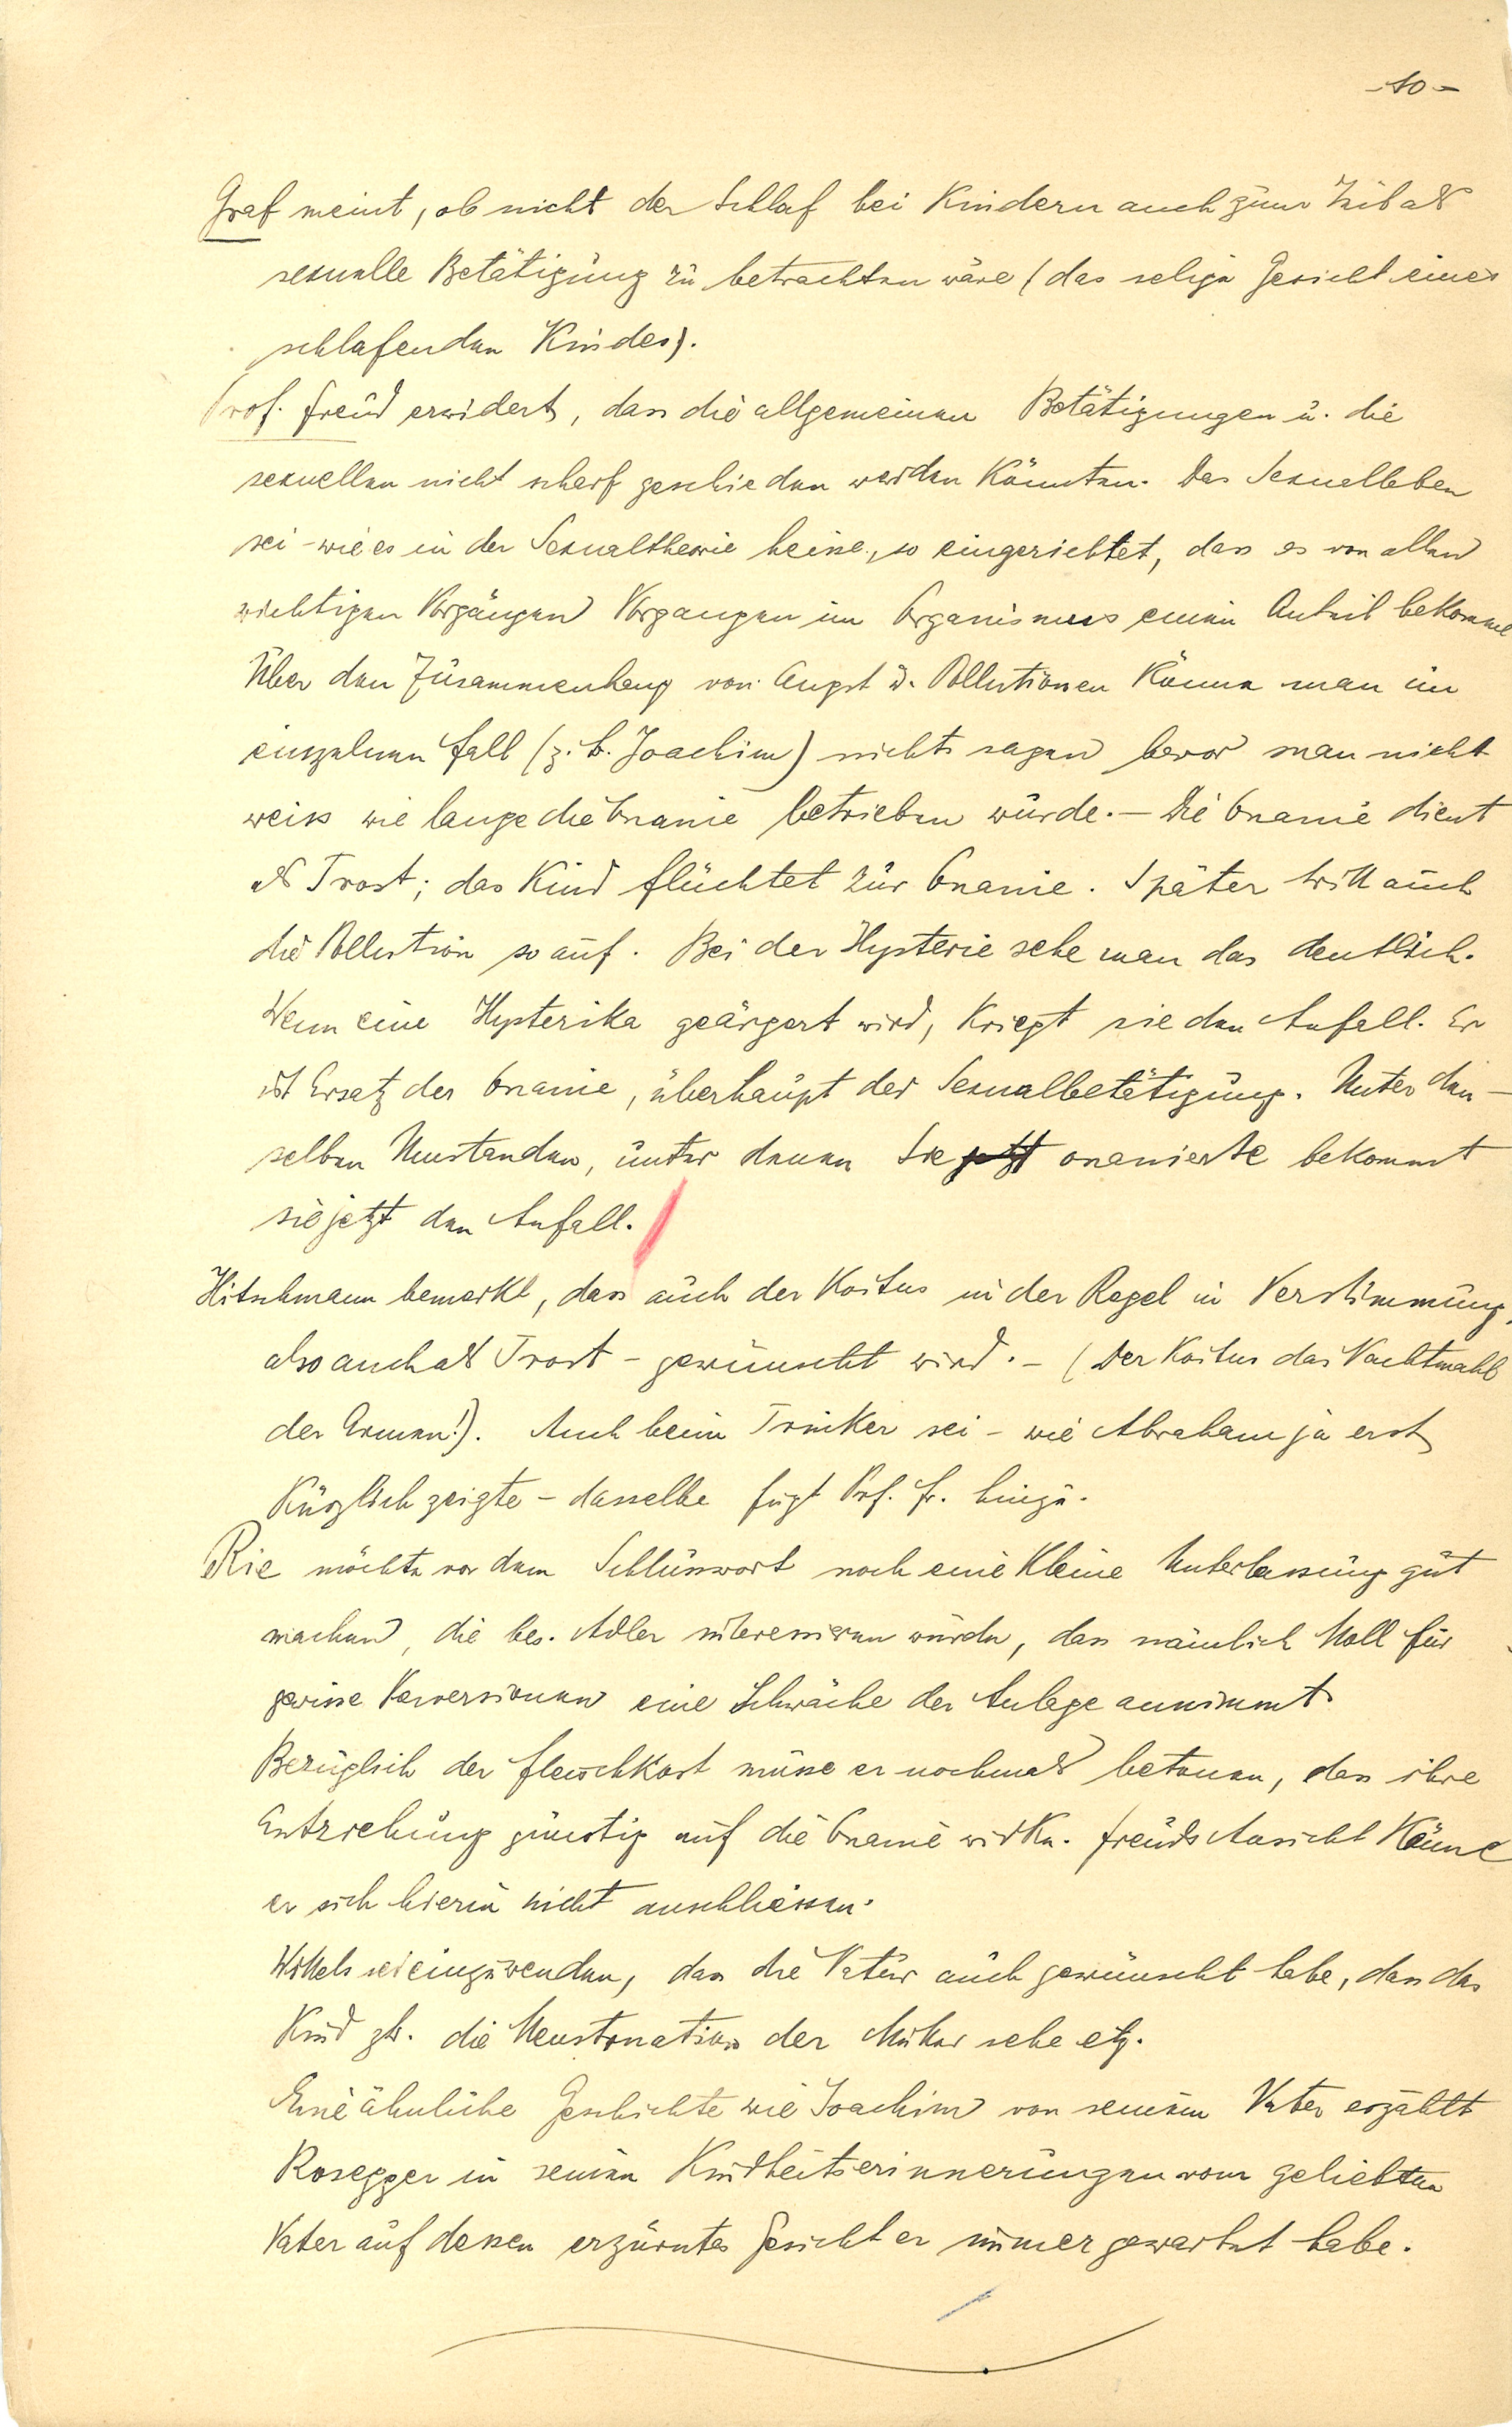 -10-
Graf meint, ob nicht der Schlaf bei Kindern auch zum Teil als
sexuelle Betätigung zu betrachten wäre (das selige Gesicht eines
schlafenden Kindes).
Prof. Freud erwidert, dass die allgemeinen Betätigungen u. die
sexuellen nicht scharf geschieden werden könnten. Das Sexualleben
sei - wie es in der Sexualtheorie heisse, so eingerichtet, dass es von allen
wichtigen Vorgängen Vorgangen im Organismus einen Anteil bekomme
Über den Zusammenhang von Angst u. Pollutionen könne man im
einzelnen Fall (z. B. Joachim) nichts sagen bevor man nicht
weiss wie lange die Onanie betrieben wurde. — Die Onanie dient
als Trost; das Kind flüchtet zur Onanie. Später tritt auch
die Pollution so auf. Bei der Hysterie sehe man das deutlich.
Wenn eine Hysterika geärgert wird, kriegt sie den Anfall. Er
ist Ersatz der Onanie, überhaupt der Sexualbetätigung. Unter den-
selben Umstanden, unter denen sie jetzt onanierte bekommt
sie jetzt den Anfall.
Hitschmann bemerkt, dass auch der Koitus in der Regel in Verstimmung,
also auch als Trost - gewünscht wird. - (Der Koitus das Nachtmahl
der Armen!). Auch beim Trinker sei - wie Abraham ja erst
kürzlich zeigte - dasselbe fügt Prof. Fr. hinzu.
Rie möchte vor dem Schlusswort noch eine kleine Unterlassung gut
machen, die bes. Adler interessieren würde, dass nämlich Moll für
gewisse Perversionen eine Schwäche der Anlage annimmt
Bezüglich der Fleischkost müsse er nochmals betonen, dass ihre
Entziehung günstig auf die Onanie wirke. Freuds Ansicht könne
er sich hierin nicht anschliessen.
Wittels sei einzuwenden, dass die Natur auch gewünscht habe, dass das
Kind zB. die Menstruation der Mutter sehe etz.
Eine ähnliche Geschichte wie Joachim von seinem Vater erzählt
Rosegger in seinen Kindheitserinnerungen vom geliebten
Vater auf dessen erzürntes Gesicht er immer gewartet habe.